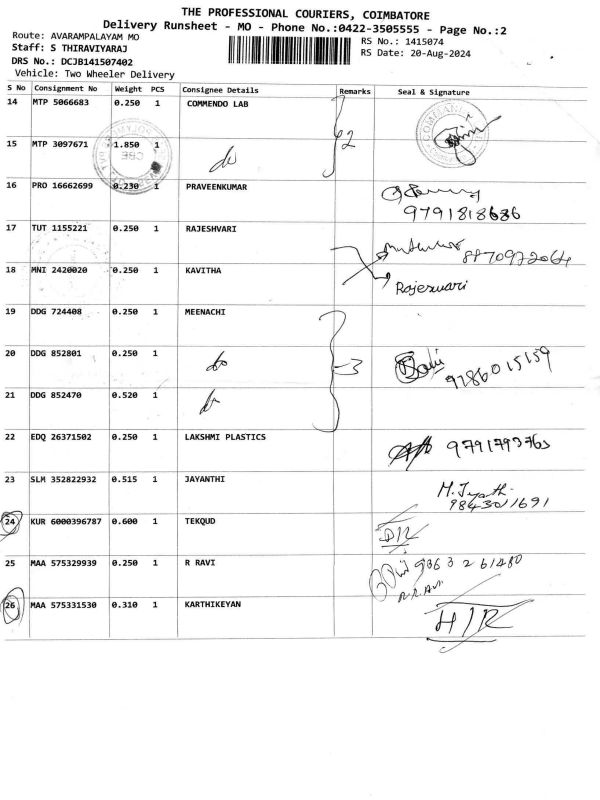 THE PROFESSIONAL COURIERS, COIMBATORE
Delivery Runsheet - MO - Phone No.:0422-3505555 - Page No.:2
Route: AVARAMPALAYAM MO
RS No.: 1415074
Staff: S THIRAVIYARAJ
RS Date: 20-Aug-2024
DRS No.: DCJB141507402
Vehicle: Two Wheeler Delivery
S No Consignment No Weight PCS Consignee Details Remarks Seal & Signature
14 MTP 5066683 0.250 1 COMMENDO LAB
2
15 MTP 3097671 1.850 1 do
16 PRO 16662699 0.230 1 PRAVEENKUMAR
9791818686
17 TUT 1155221 0.250 1 RAJESHVARI
8870972064
18 MNI 2420020 0.250 1 KAVITHA Rajeswari
19 DDG 724408 0.250 1 MEENACHI
20 DDG 852801 0.250 1 do -3
9786015159
21 DDG 852470 0.520 1 do
22 EDQ 26371502 0.250 1 LAKSHMI PLASTICS 9791793763
23 SLM 352822932 0.515 1 JAYANTHI M. Jyothi
9843011691
24 KUR 6000396787 0.600 1 TEKQUD DIR
25 MAA 575329939 0.250 1 R RAVI 9363261480
26 MAA 575331530 0.310 1 KARTHIKEYAN HIR